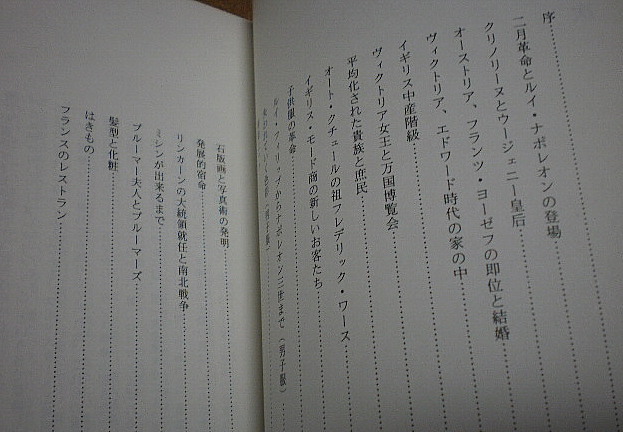 序
二月革命とルイ・ナポレオンの登場
クリノリーヌとウージェニー皇后
オーストリア、フランツ・ヨーゼフの即位と結婚
ヴィクトリア、エドワード時代の家の中
イギリス中産階級
ヴィクトリア女王と万国博覧会
平均化された貴族と庶民
オート・クチュールの祖フレデリック・ワース
イギリス・モード商の新しいお客たち
子供服の革命
ルイ・フィリップからナポレオン三世まで（男子服）
石版画と写真術の発明
発展的宿命
リンカーンの大統領就任と南北戦争
ミシンが出来るまで
ブルーマー夫人とブルーマーズ
髪型と化粧
はきもの
フランスのレストラン